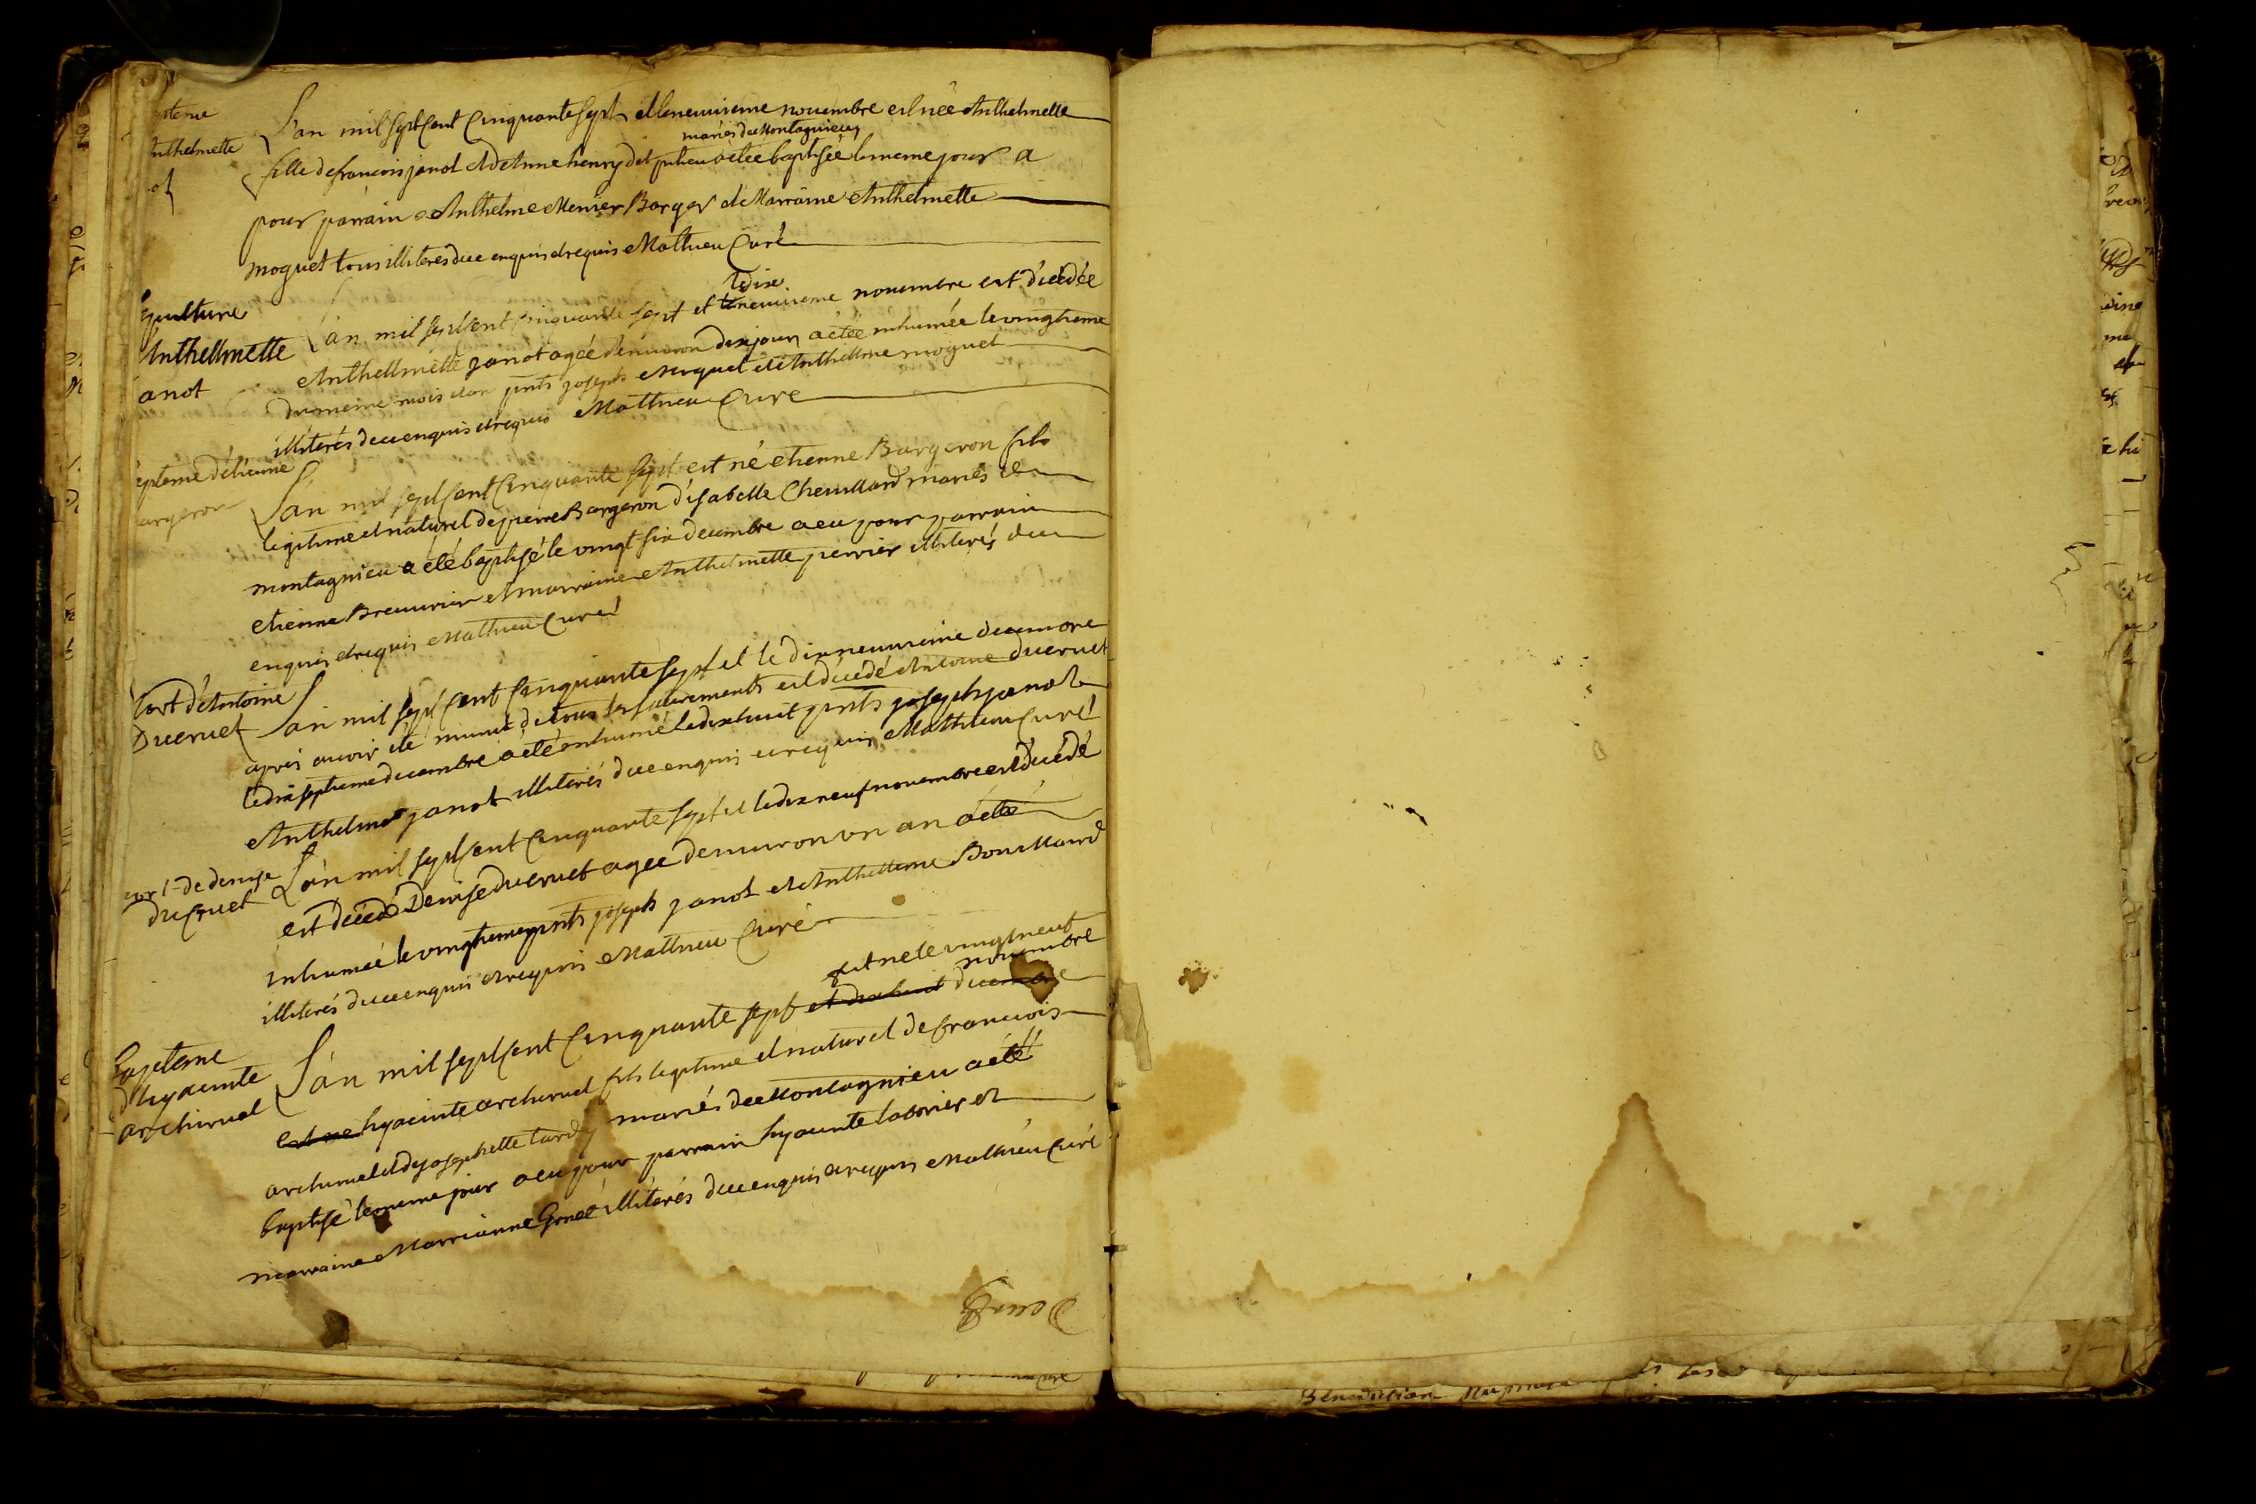 L'an mil sept cent cinquante sept et le neuvieme novembre est née Anthelmette
Anthelmette
mariés de Montagnieu
fille de francois janot et de Anne henry a été baptisée le meme jour a
pour parrain Anthelme Menier Barger et Marraine Anthelmette
moguet tous illiteres de ce enquis et requis Mathieu Curé
sepulture
le dix
L'an mil sept cent cinquante sept et le neuvieme novembre est décedée
Anthellmette
Anthellmette janot agée d'environ dix jours a étée inhumée le vingtieme
anot
du meme mois presents joseph Moguet et Anthellme moguet
illiterés de ce enquis et requis Mathieu Curé
epteme d'etienne
L'an mil sept cent cinquante sept est né etienne Bargeron fils
argeron
legitime et naturel de pierre Bargeron d'isabelle Cheullard mariés de
montagnieu a été baptisé le vingt six decembre a eu pour parrain
etienne Breuvrier et marraine Anthelmette perrier illiterés de ce
enquis et requis Mathieu Curé
Mort d'Antoine
L'an mil sept cent cinquante sept et le dixneuvieme decembre
Ducruet
apres avoir été munit de tous les sacrements est décedé Antoine Ducruet
le dix septieme decembre a été enhumé le dixhuit presents joseph janot
Anthelme janot illiterés de ce enquis et requis Mathieu Curé
mort de denise
L'an mil sept cent cinquante sept et le dix neuf novembre est décedé
ducruet
est décedé Denise Ducruet agee d'environ un an a été
inhumée le vingtieme presents joseph janot et Anthellme Bouillard
illiterés de ce enquis et requis Mathieu Curé
est né le vingt neuf
novembre
L'an mil sept cent cinquante sept et dixhuit decembre
Bapteme
d'hyacinte
est né hyacinte archirel fils legitime et naturel de francois
archirel
archirel et de josephette tardy mariés de Montagnieu a été
baptisé le meme jour a eu pour parrain hyacinte labrier et
marraine Marrianne Genet illiterés de ce enquis et requis Mathieu Curé